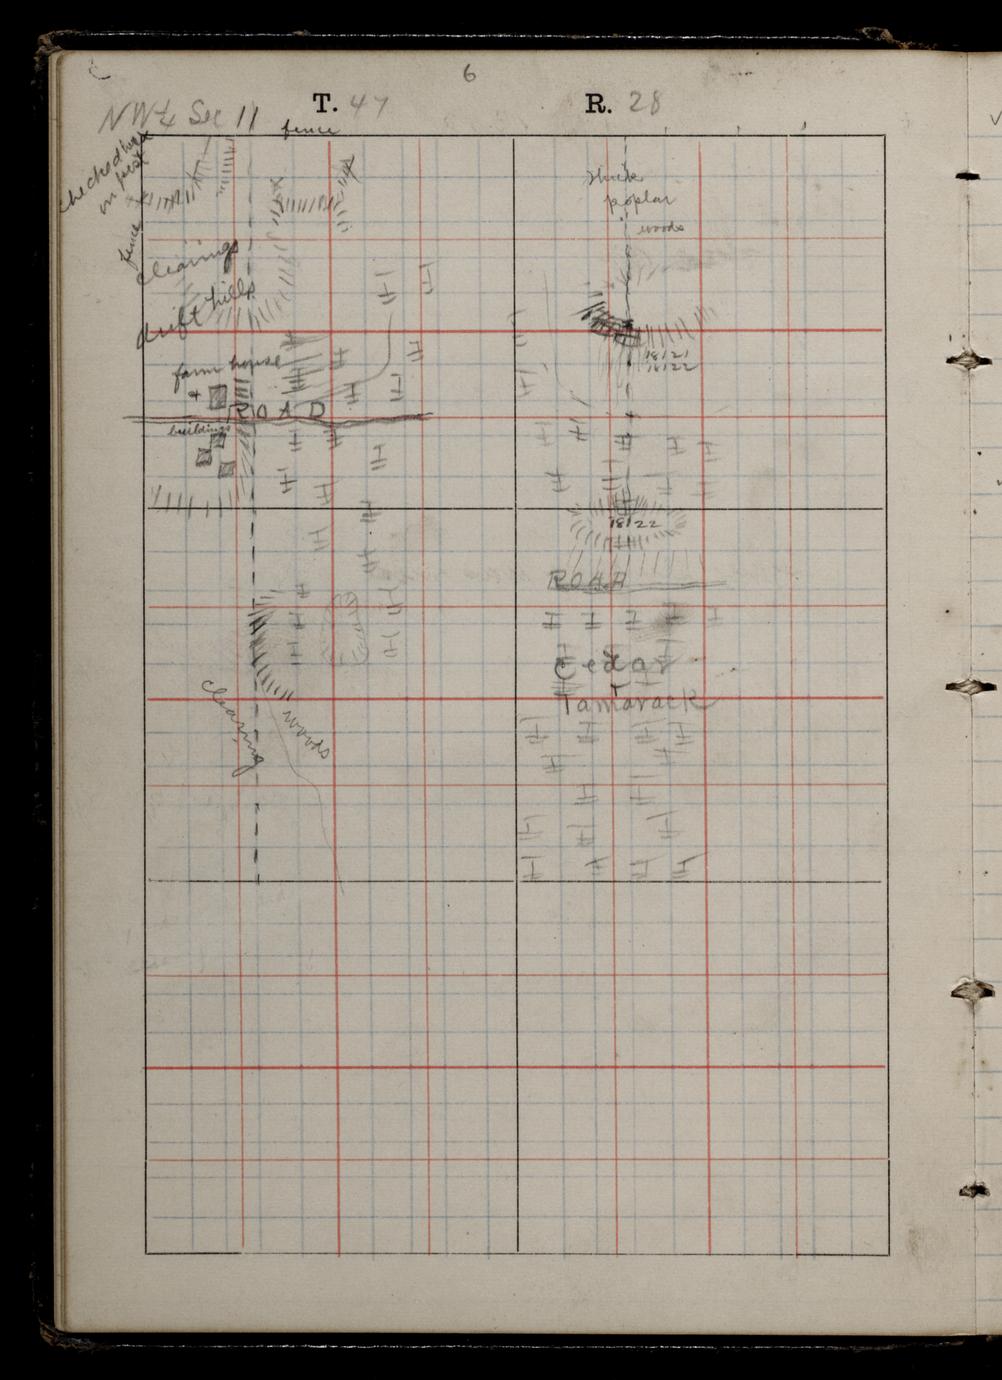 6
T. 47 R. 28
NW¼ Sec 11
fence
checked
in post
fence
clearings
drift hills
farm house
+
ROAD
buildings
clearing
woods
thick
poplar
woods
18121
18122
18122
ROAD
Cedar
Tamarack